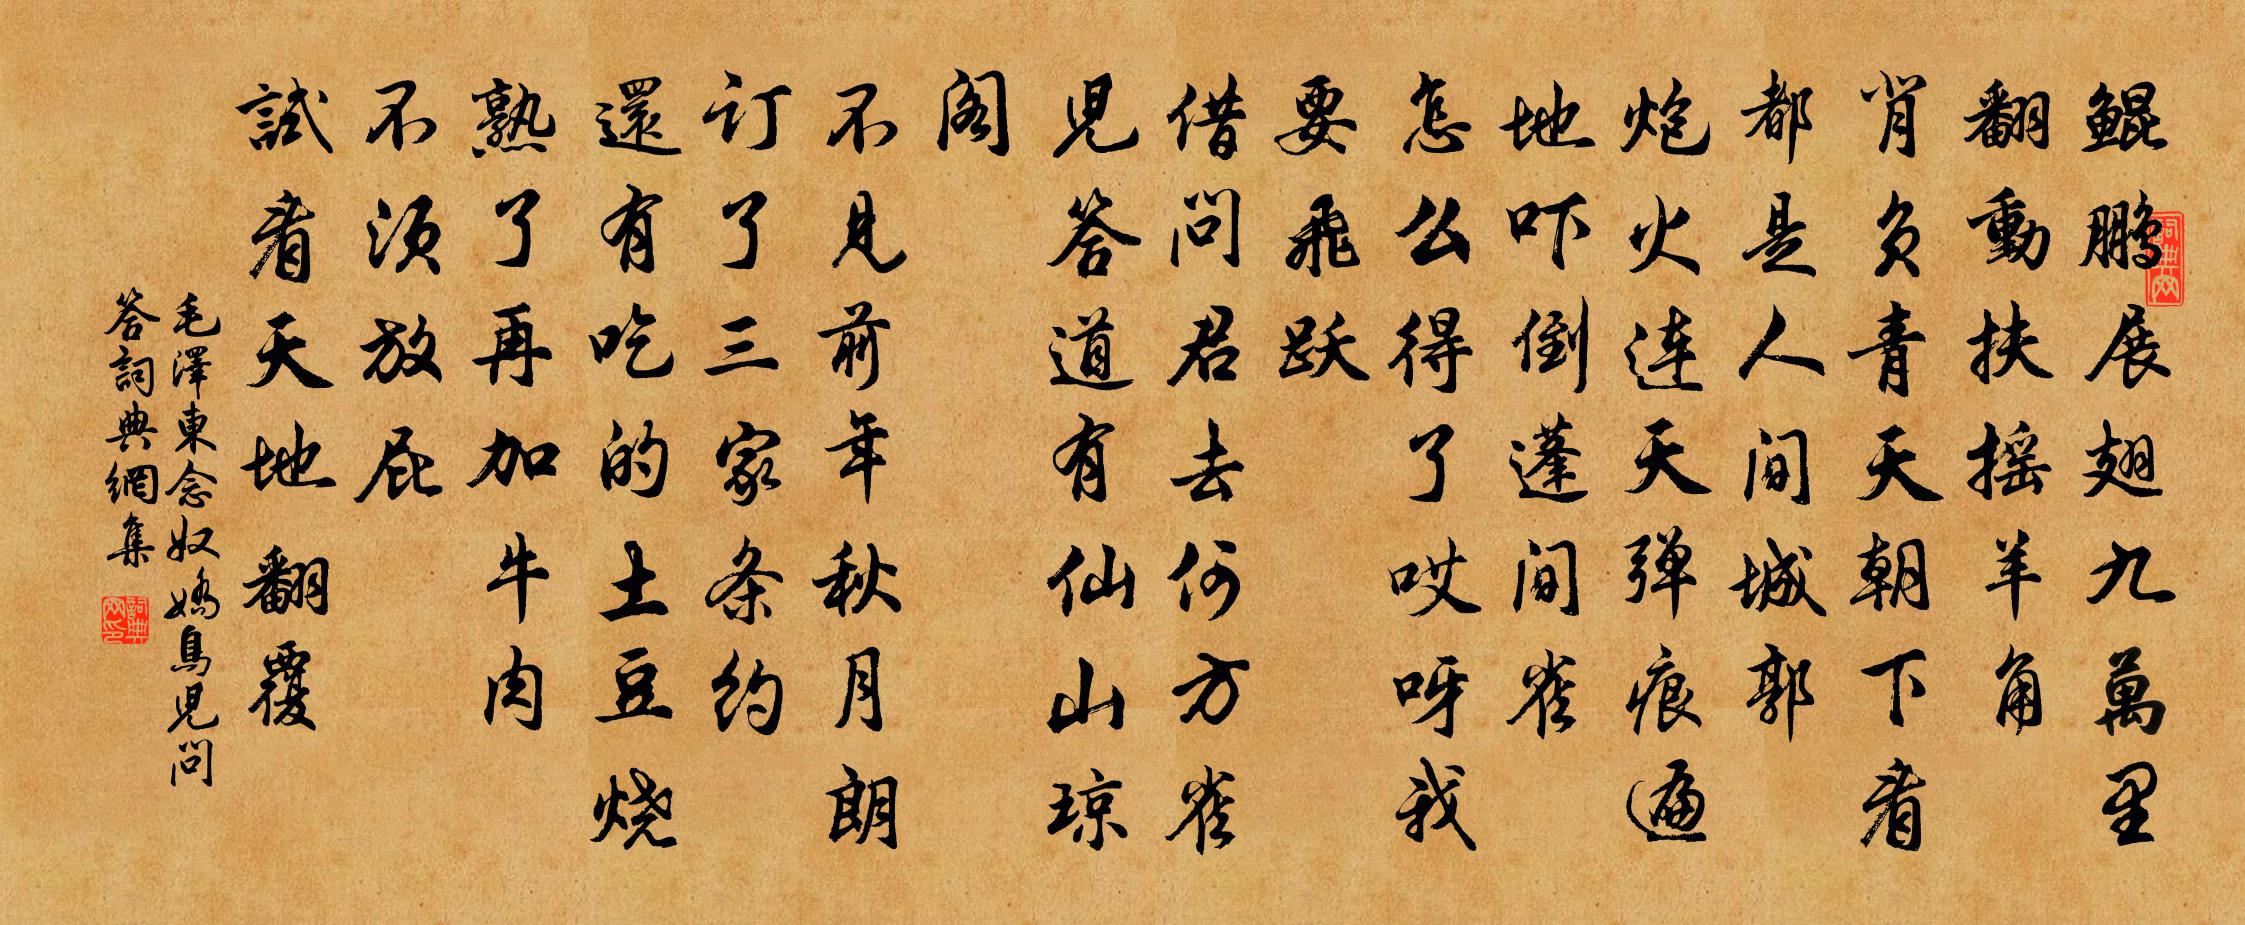 鲲鹏展翅九萬里
翻動扶摇羊角
背负青天朝下看
都是人间城郭
炮火连天弹痕遍
地吓倒蓬间雀
怎么得了哎呀我
要飛跃
借问君去何方雀
児答道有仙山琼
阁
不见前年秋月朗
订了三家条约
還有吃的土豆烧
熟了再加牛肉
不须放屁
試看天地翻覆
毛澤東念奴嬌鳥児问
答詞典網集
詞典网
詞典网印